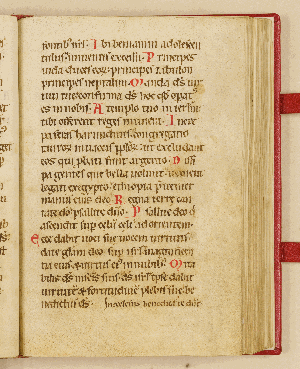 fontib' isrl. Ibi beniamin adolescen
tulus in mentis excessu. Principes
iuda duces eorum principes zabulon
principes neptalim. Manda deus uir
tuti tue confirma deus hoc quod operatus
es in nobis. A templo tuo in ierlm
tibi offerent reges munera. Incre
pa feras harundinis congregatio
taurorum in uaccis pplorum ut excludant
eos qui probati sunt argento. Dissi
pa gentes que bella uolunt uenient
legati ex egypto ethiopia preueniet
manus eius deo. Regna terre can
tate deo psallite dno. Psallite deo qui
ascendit super celum celi ad orientem.
Ecce dabit uoci sue uocem uirtutis
date gliam deo super isrl magnificen
tia eius et uirtus eius in nubibus. Mira
bilis deus in scis suis deus isrl ipse dabit
uirtutem et fortitudinem plebis sue be
nedictus deus.